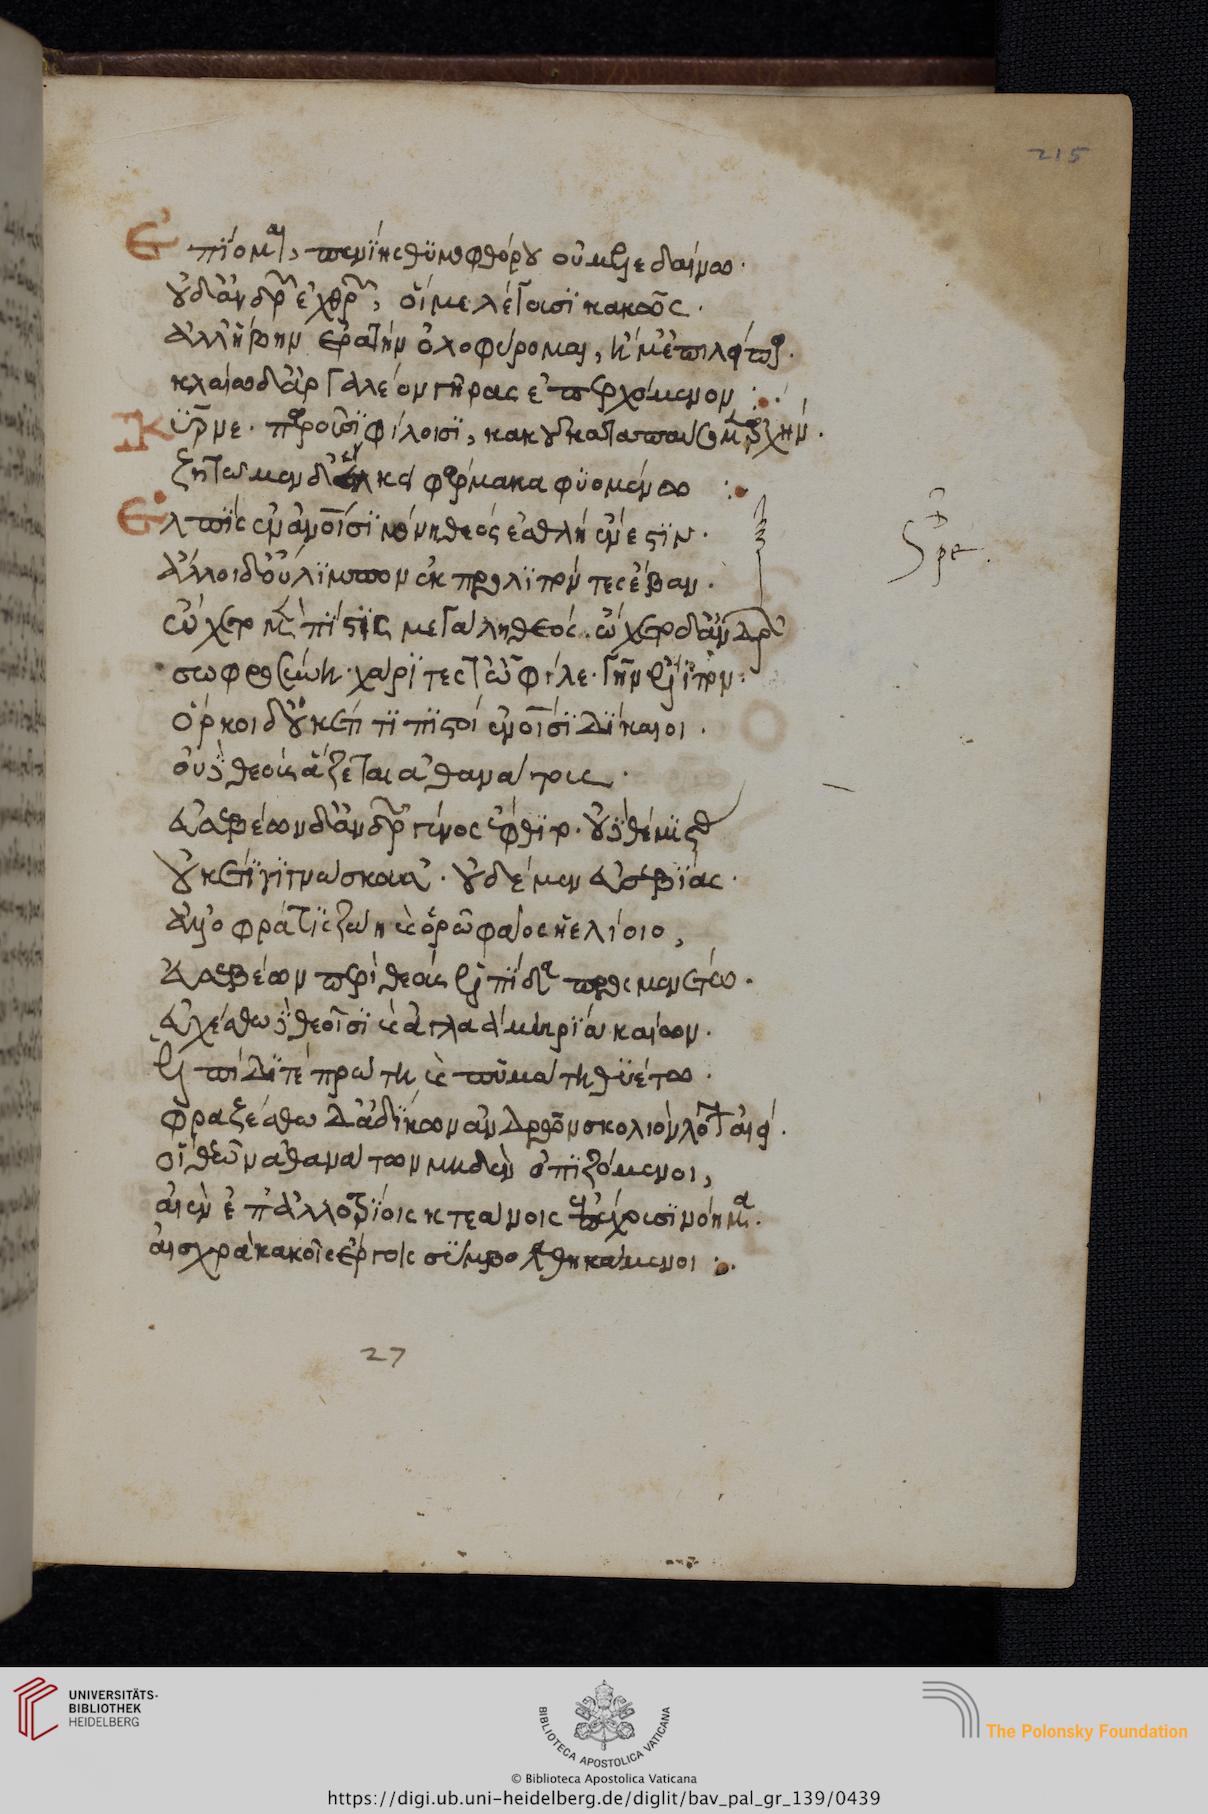 215
Ἐπίομαι, πενίης θυμοφθόρου οὐ μελεδαίνω.
οὐδ' ἀνδρῶν ἐχθρῶν, οἵ με λέγουσι κακῶς.
ἀλλ' ἥβην ἐρατὴν ὀλοφύρομαι, ἥ μ' ἐπιλείπει.
κλαίω δ' ἀργαλέον γῆρας ἐπερχόμενον :
Κύρνε. παροῦσι φίλοισι, κακοῦ καταπαύσομεν ἀρχήν.
ζητῶμεν δ' ἕλκει φάρμακα φυομένω :
Ἐλπὶς ἐν ἀνθρώποισι μόνη θεὸς ἐσθλὴ ἔνεστιν.
ἄλλοι δ' οὔλυμπον ἐκπρολιπόντες ἔβαν.
ᾤχετο μὲν πίστις μεγάλη θεός. ᾤχετο δ' ἀνδρῶν
Spe.
σωφροσύνη. χάριτές τ' ὦ φίλε. γῆν ἔλιπον.
ὅρκοι δ' οὐκέτι πιστοὶ ἐν ἀνθρώποισι δίκαιοι.
οὐδὲ θεοὺς οὐδεὶς ἅζεται ἀθανάτους.
εὐσεβέων δ' ἀνδρῶν γένος ἔφθιτο. οὐδὲ θέμιστας
οὐκέτι γιγνώσκουσ'. οὐδὲ μὲν εὐσεβίας.
ἀλλ' ὄφρα τις ζώη καὶ ὁρῶ φάος ἠελίοιο,
εὐσεβέων περὶ θεοὺς ἐλπίδα προσμενέτω.
εὐχέσθω δὲ θεοῖσι καὶ ἀγλαὰ μηρία καίων.
ἐλπίδι τε πρώτη καὶ πυμάτη θυέτω.
φραζέσθω δ' ἀδίκων ἀνδρῶν σκολιὸν λόγον αἰεί.
οἳ θεῶν ἀθανάτων μηδὲν ὀπιζόμενοι,
αἰὲν ἐπ' ἀλλοτρίοις κτεάνοις ἐπέχουσι νόημα.
αἰσχρὰ κακοῖς ἔργοις σύμβολα θηκάμενοι :
27
UNIVERSITÄTS-
BIBLIOTHEK
HEIDELBERG
BIBLIOTECA APOSTOLICA VATICANA
The Polonsky Foundation
© Biblioteca Apostolica Vaticana
https://digi.ub.uni-heidelberg.de/diglit/bav_pal_gr_139/0439